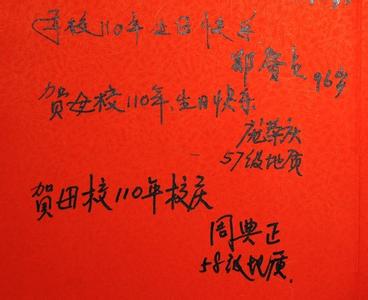 母校110年生日快乐
96岁
贺母校110年、生日快乐
庞荣庆
57级地质
贺母校110年校庆
周典正
58级地质